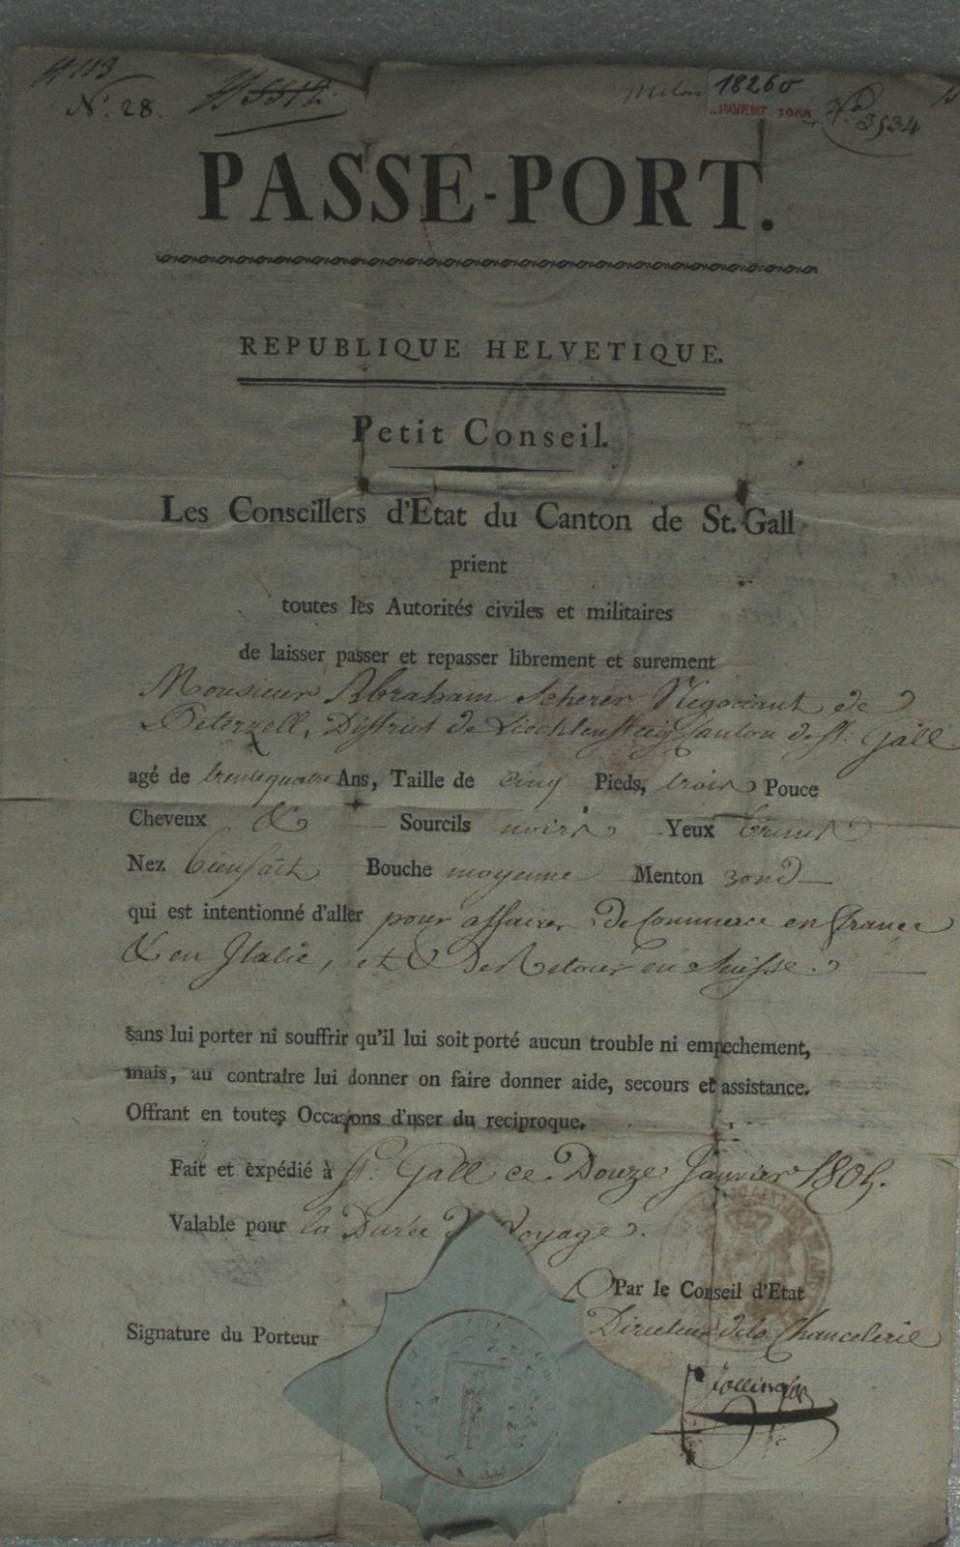 # 113
N.º 28.
18260
3534
PASSE-PORT.
REPUBLIQUE HELVETIQUE.
Petit Conseil.
Les Conseillers d'Etat du Canton de St. Gall
prient
toutes les Autorités civiles et militaires
de laisser passer et repasser librement et surement
Monsieur Abraham Scherer Negociant de
Peterzell, District de Liechtensteig Canton de St. Gall
agé de trente quatre Ans, Taille de cinq Pieds, trois Pouce
Cheveux & Sourcils noirs Yeux bruns
Nez bienfait Bouche moyenne Menton rond
qui est intentionné d'aller pour affaires de Commerce en France
& en Italie, et de Retour en Suisse.
sans lui porter ni souffrir qu'il lui soit porté aucun trouble ni empechement,
mais, au contraire lui donner on faire donner aide, secours et assistance.
Offrant en toutes Occasions d'user du reciproque.
Fait et expédié à St. Gall ce Douze Janvier 1805.
Valable pour la Durée du Voyage.
Par le Conseil d'Etat
Directeur de la Chancelerie
Signature du Porteur